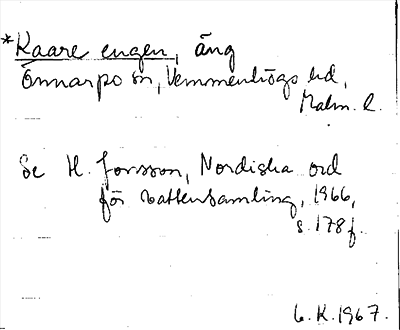 *Kaare engen, äng
Önnarps sn, Vemmenhögs hd,
Malm. l.
Se H. Jonsson, Nordiska ord
för vattensamling, 1966,
s. 178 f.
L.K. 1967.